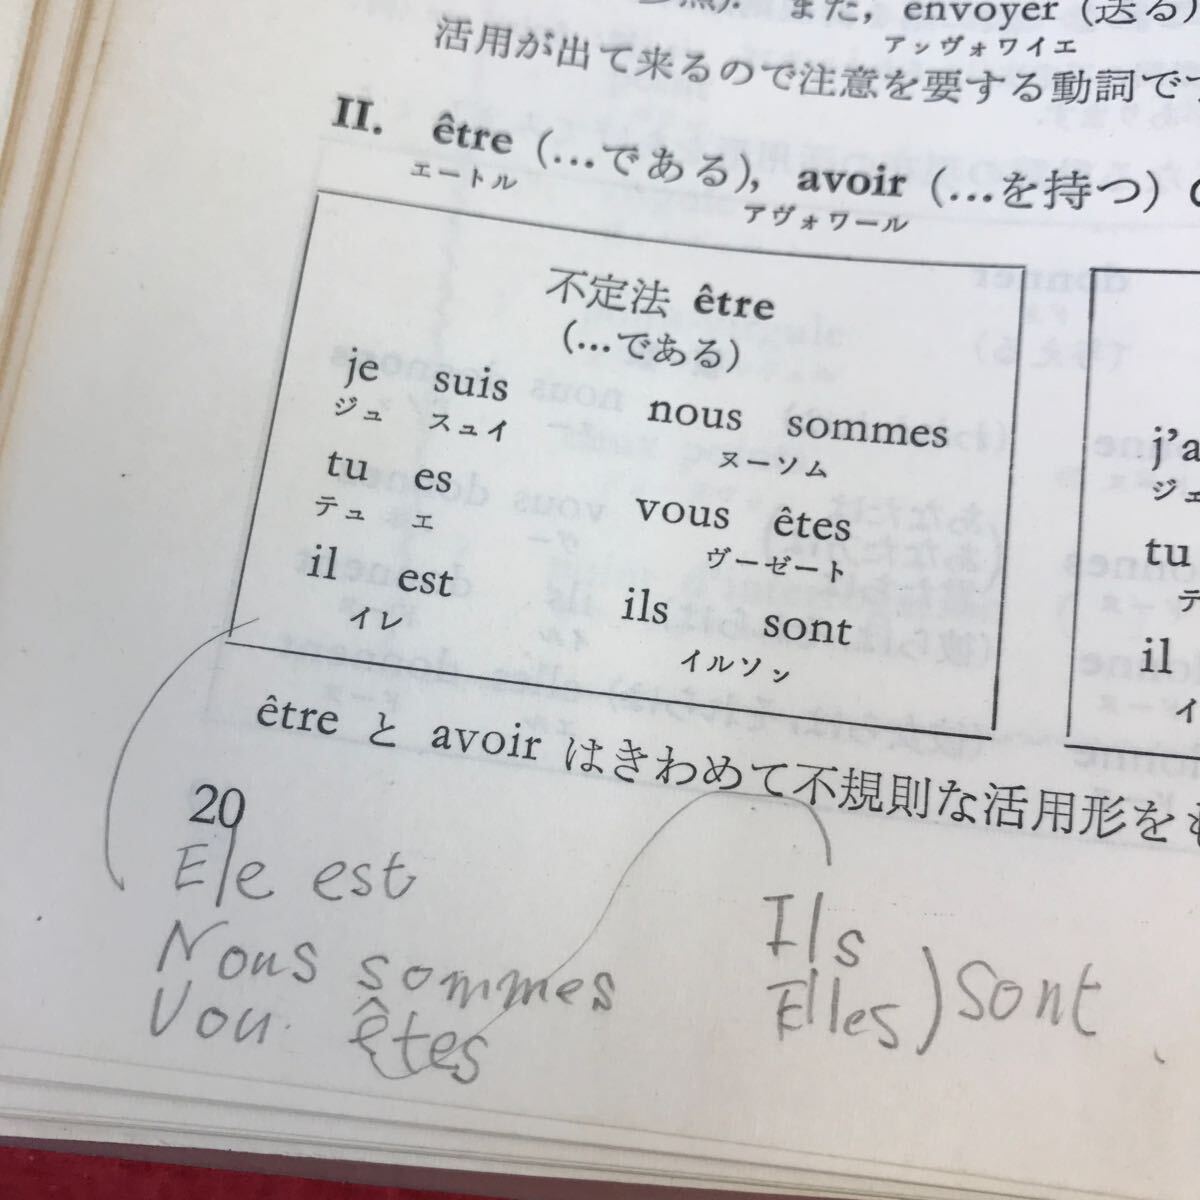 また, envoyer (送る)
アンヴォワイエ
活用が出て来るので注意を要する動詞で
II. être (...である), avoir (...を持つ)
エートル アヴォワール
不定法 être
(...である)
je suis nous sommes
ジュ スュイ ヌーソム
tu es vous êtes
テュ エ ヴーゼート
il est ils sont
イレ イルソン
j'a
ジェ
tu
テ
il
イ
être と avoir はきわめて不規則な活用形をも
20
Ele est
Nous sommes
Vou êtes
Ils
Elles ) sont